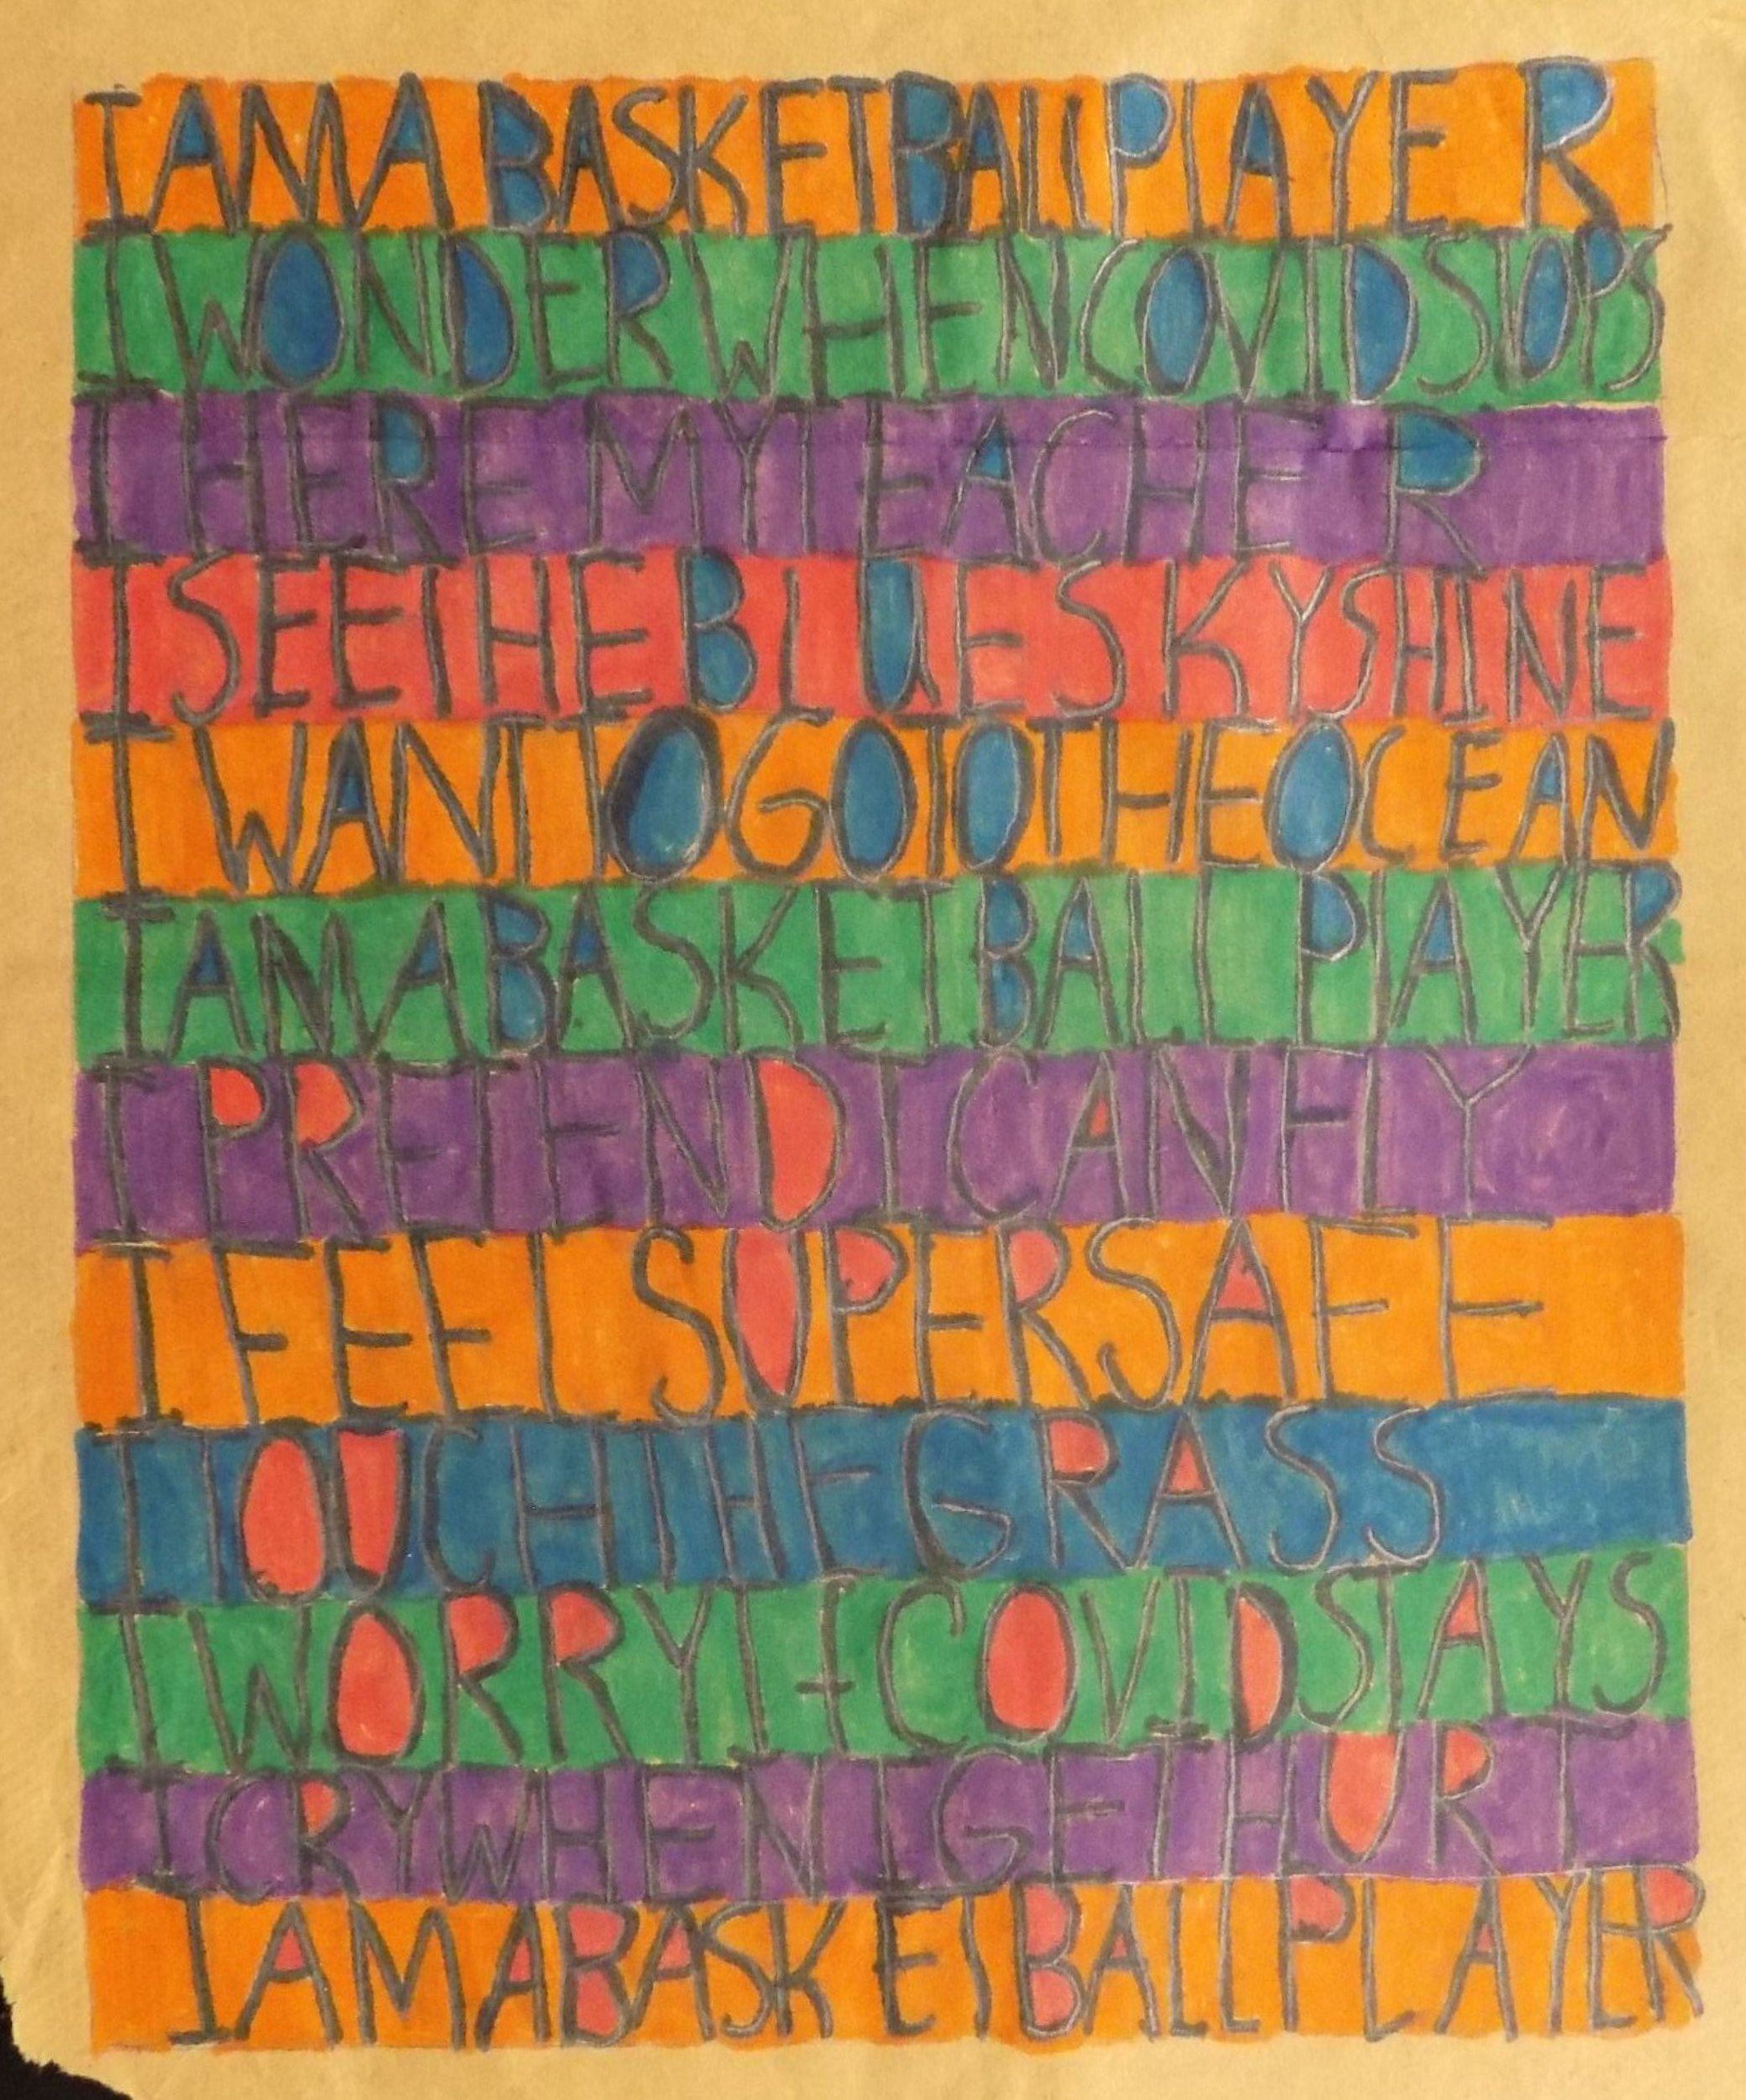 I AM A BASKETBALL PLAYER
I WONDER WHEN COVID STOPS
I HERE MY TEACHER
I SEE THE BLUE SKY SHINE
I WANT TO GO TO THE OCEAN
I AM A BASKETBALL PLAYER
I PRETEND I CAN FLY
I FEEL SUPER SAFE
I TOUCH THE GRASS
I WORRY IF COVID STAYS
I CRY WHEN I GET HURT
I AM A BASKETBALL PLAYER